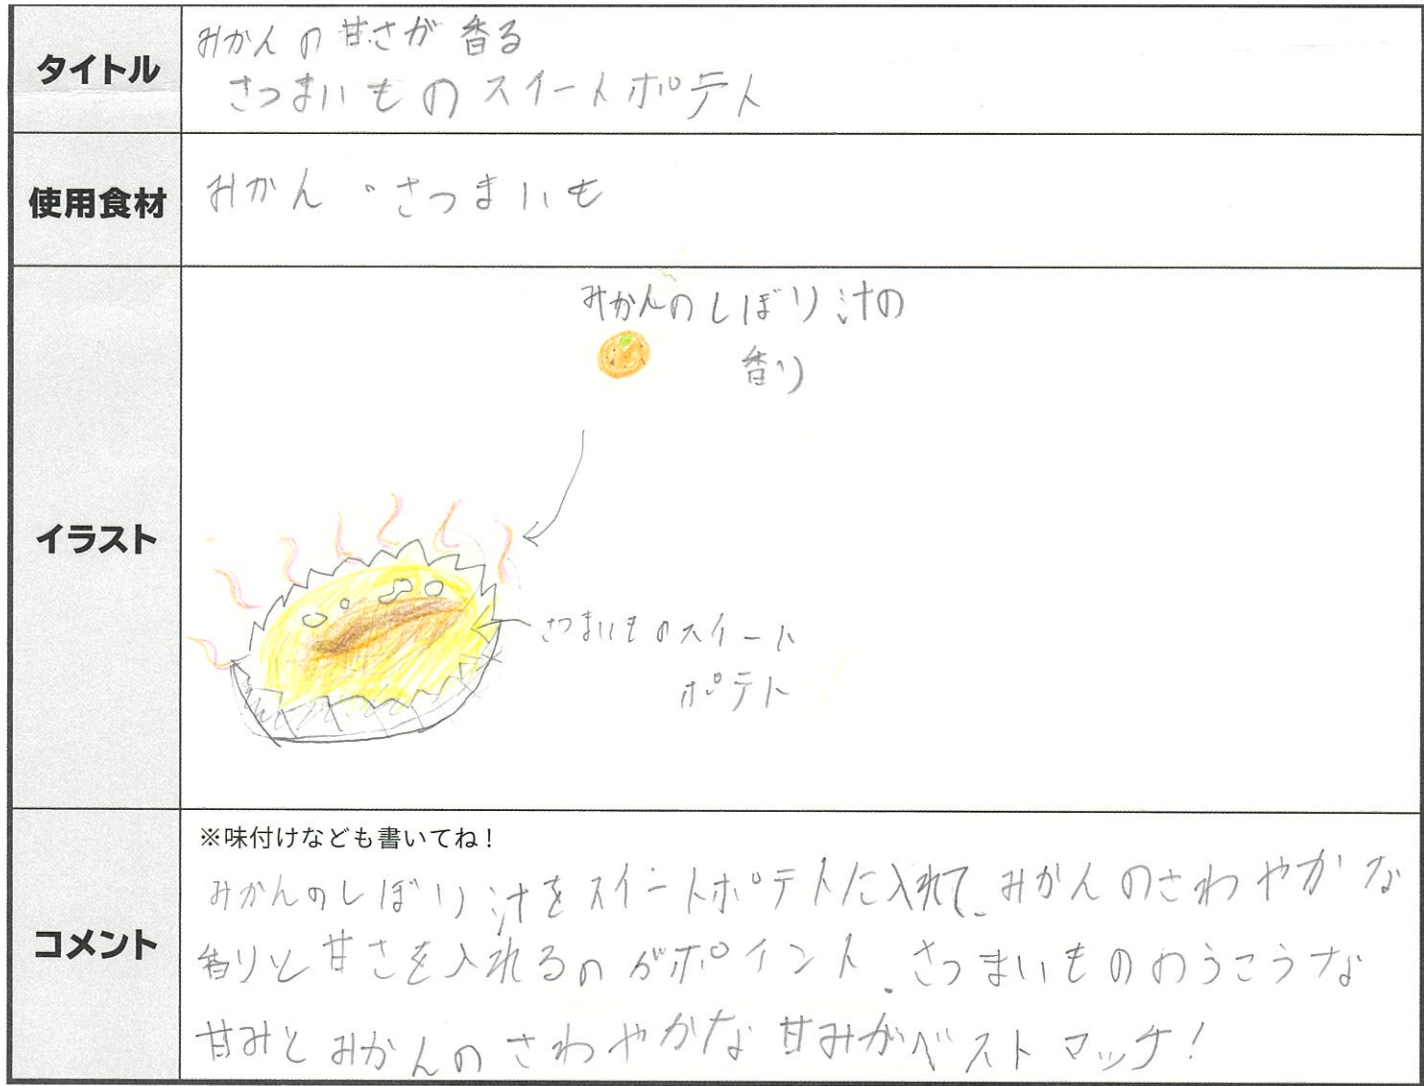 タイトル
みかんの甘さが香る
さつまいものスイートポテト
使用食材
みかん・さつまいも
イラスト
みかんのしぼり汁の
香り
さつまいものスイート
ポテト
コメント
※味付けなども書いてね！
みかんのしぼり汁をスイートポテトに入れて、みかんのさわやかな
香りと甘さを入れるのがポイント、さつまいもののうこうな
甘みとみかんのさわやかな甘みがベストマッチ！